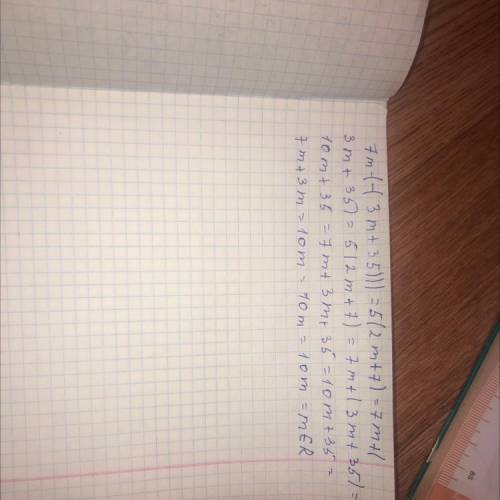 7m-(-(3m+35)))=5(2m+7)=7m+(
3m+35)=5(2m+7)=7m+(3m+35)=
10m+35=7m+3m+35=10m+35=
7m+3m=10m=10m=10m=m∈R